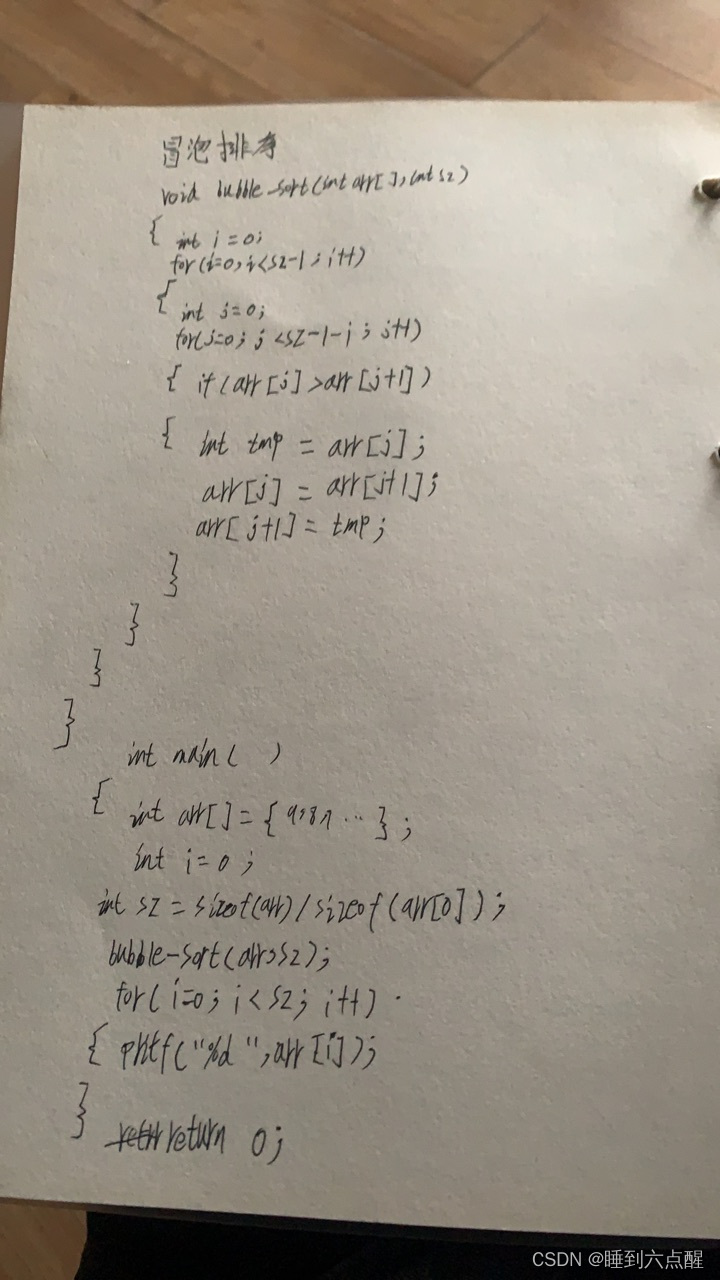 冒泡排序
void bubble-sort(int arr[],int sz)
{ int i=0;
for(i=0;i<sz-1;i++)
{ int j=0;
for(j=0; j<sz-1-i; j++)
{ if(arr[j]>arr[j+1])
{ int tmp = arr[j];
arr[j] = arr[j+1];
arr[j+1]=tmp;
}
}
}
}
int main( )
{ int arr[]={9,8,7...};
int i=0;
int sz=sizeof(arr)/sizeof(arr[0]);
bubble-sort(arr,sz);
for(i=0; i<sz; i++)
{ printf("%d ",arr[i]);
}
return 0;
CSDN @睡到六点醒